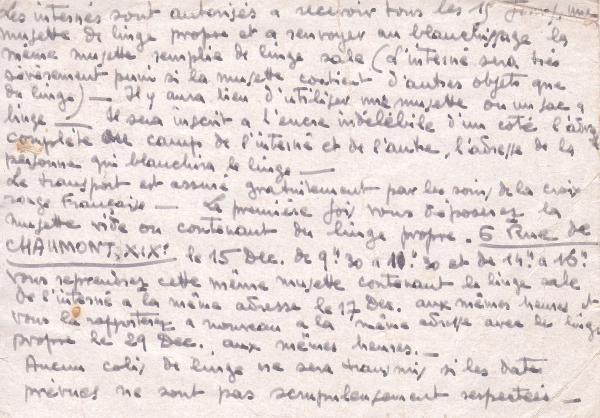 les internés sont autorisés a recevoir tous les 15 jours, une
musette de linge propre et a renvoyer au blanchissage la
même musette remplie de linge sale (L'interné sera très
sévèrement puni si la musette contient d'autres objets que
du linge) — Il y aura lieu d'utiliser une musette ou un sac a
linge — Il sera inscrit a l'encre indélébile d'un coté l'adresse
complète au camp de l'interné et de l'autre, l'adresse de la
personne qui blanchira le linge —
Le transport est assuré gratuitement par les soins de la croix
rouge Française — La première fois vous déposerez la
musette vide ou contenant du linge propre. 6 Rue de
CHAUMONT. XIXe le 15 Dec. de 9h 30 a 11h 30 et de 14h a 16h
Vous reprendrez cette même musette contenant le linge sale
de l'interné a la même adresse le 17 Dec. aux mêmes heures et
vous la rapporterez a nouveau a la même adresse avec du linge
propre le 29 Dec. aux mêmes heures. —
Aucun colis de linge ne sera transmis si les dates
prévues ne sont pas scrupuleusement respectées —